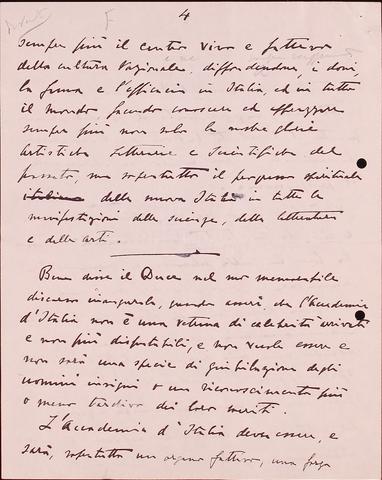 4
sempre più il centro vivo e fattivo
della cultura nazionale, diffondendone i doni,
la forma e l'efficacia in Italia, ed in tutto
il mondo facendo conoscere ed apprezzare
sempre più non solo le nostre glorie
artistiche letterarie e scientifiche del
passato, ma soprattutto il progresso spirituale
italiano della nuova Italia in tutte le
manifestazioni delle scienze, delle letterature
e delle arti.
Bene disse il Duce nel suo memorabile
discorso inaugurale, quando asserì che l'Accademia
d'Italia non è una vetrina di celebrità arrivate
e non più disputabili, e non vuole essere e
non sarà una specie di giubilazione degli
uomini insigni o un riconoscimento più
o meno tardivo dei loro meriti.
L'Accademia d'Italia deve essere, e
sarà, soprattutto un organo fattivo, una forza